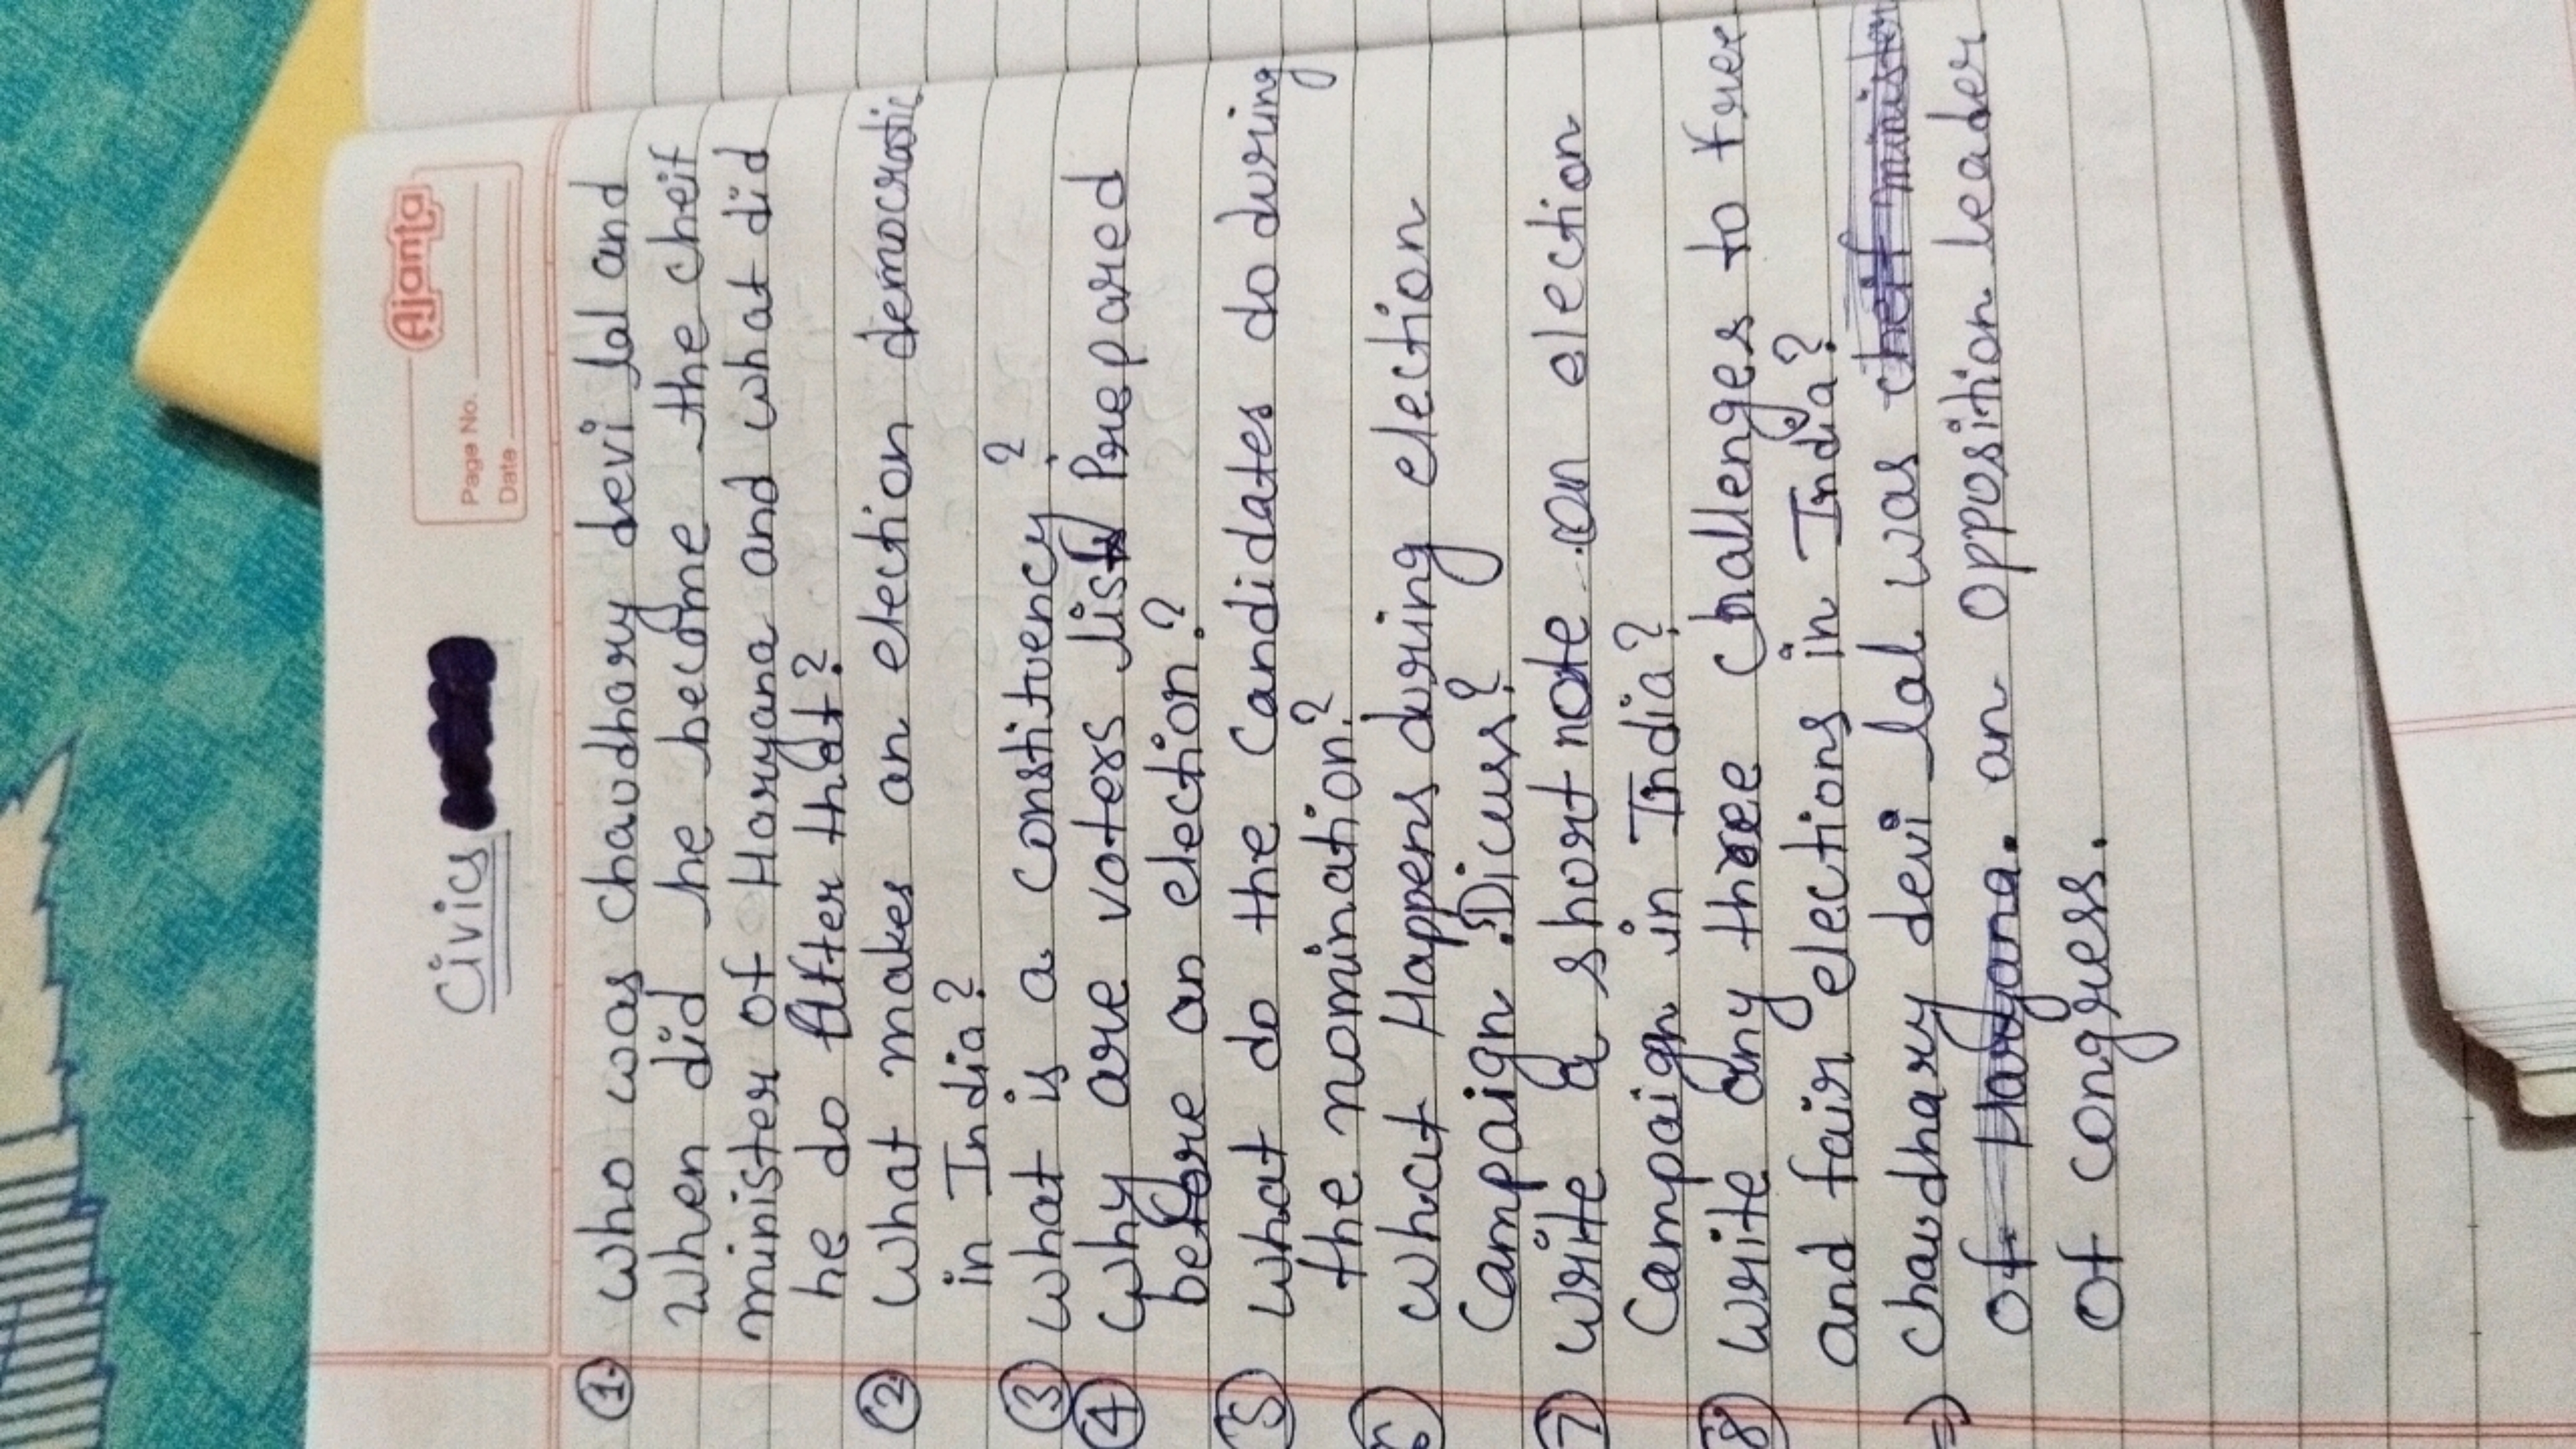 Ajanta
Page No.
Date
Civics
① who was chaudhary devi lal and
when did he become the cheif
minister of Haryana and what did
he do After that?
② what makes an election democratic
in India?
③ what is a constituency?
④ why are voters list Prepared
before an election?
⑤ what do the Candidates do during
the nomination?
⑥ what Happens during election
Campaign. Dicuss?
⑦ write a short note on election
Campaign in India?
⑧ write any three Challenges to free
and fair elections in India?
⇒ chaudhary devi lal was cheif minister
of Haryana. an opposition leader
of congress.